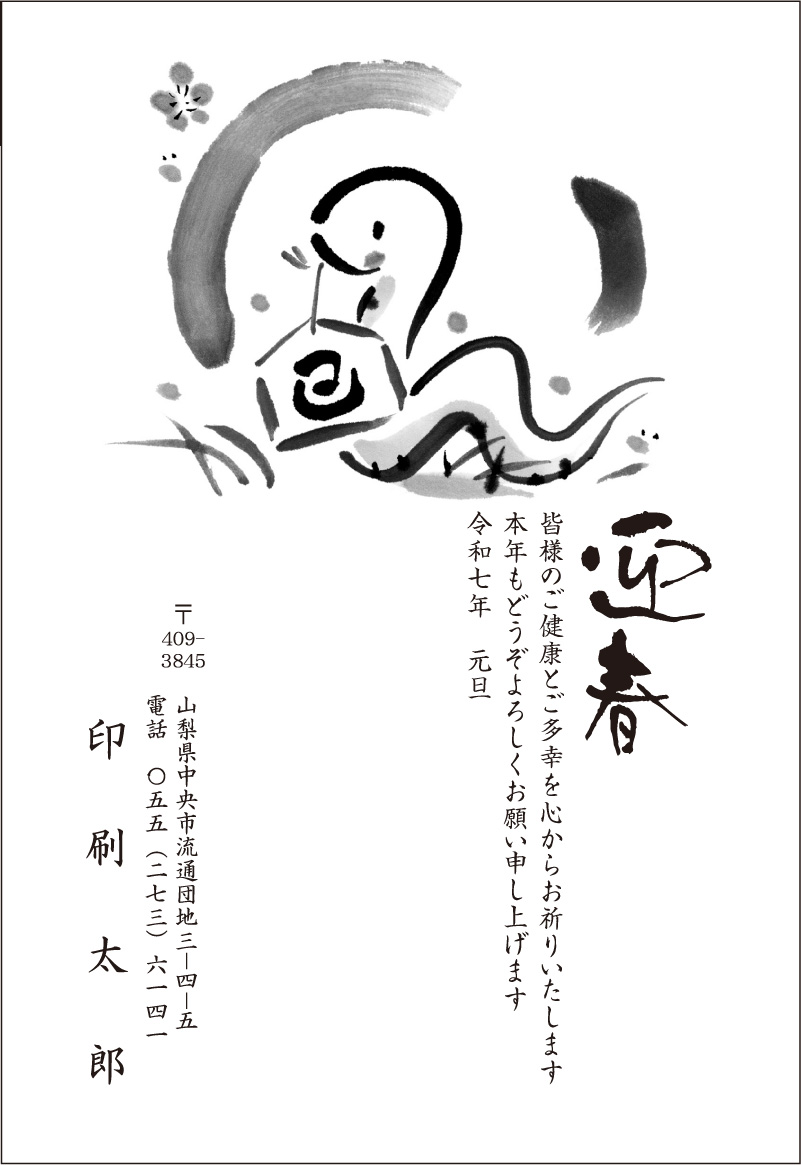 巳
迎春
皆様のご健康とご多幸を心からお祈りいたします
本年もどうぞよろしくお願い申し上げます
令和七年　元旦
〒
409-
3845
山梨県中央市流通団地三―四―五
電話　〇五五（二七三）六一四一
印刷太郎